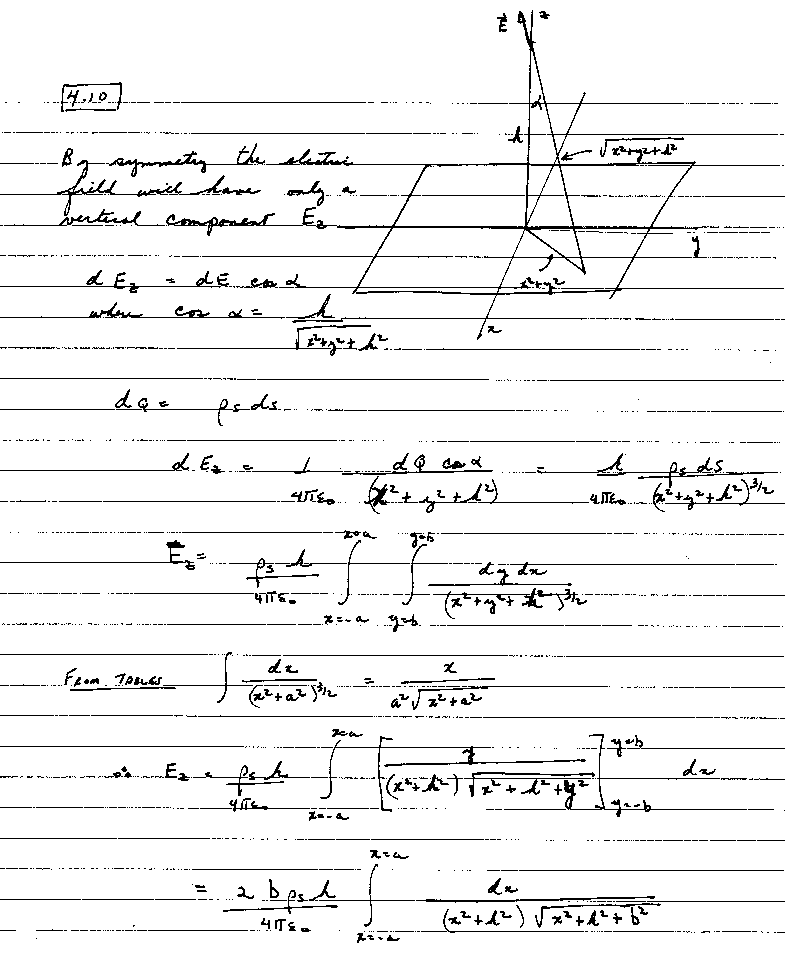 E⃗ z
4.10
α
h
√(x²+y²+h²)
By symmetry the electric
field will have only a
vertical component E_z
y
x²+y²
x
dE_z = dE cos α
where cos α = h / √(x²+y²+h²)
dQ = ρ_s ds
dE_z = 1/(4πε₀) dQ cos α / (x²+y²+h²) = h/(4πε₀) ρ_s dS / (x²+y²+h²)^(3/2)
E_z = ρ_s h/(4πε₀) ∫_{x=-a}^{x=a} ∫_{y=b}^{y=b} dy dx / (x²+y²+h²)^(3/2)
FROM TABLES ∫ dx / (x²+a²)^(3/2) = x / (a² √(x²+a²))
∴ E_z = ρ_s h/(4πε₀) ∫_{x=-a}^{x=a} [ y / ((x²+h²) √(x²+h²+y²)) ]_{y=-b}^{y=b} dx
= 2 b ρ_s h/(4πε₀) ∫_{x=-a}^{x=a} dx / ((x²+h²) √(x²+h²+b²))